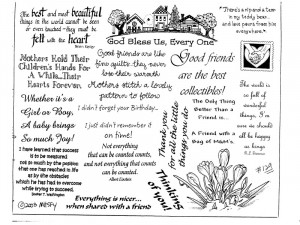 The best and most beautiful
things in the world cannot be seen
or even touched - they must be
felt with the heart
Helen Keller
God Bless Us, Every One
Mothers Hold Their
Children's Hands For
A While...Their
Hearts Forever.
Good friends are like
fine quilts. they never
lose their warmth
Mothers stitch a lovely
pattern to follow
Good friends
are the best
collectibles!
Whether it's a
Girl or Boy,
A baby brings
So much Joy!
I didn't forget your Birthday...
I just didn't remember it
on time!
Not everything
that can be counted counts,
and not everything that counts
can be counted.
Albert Einstein
I have learned that success
is to be measured
not so much by the position
that one has reached in life
as by the obstacles
which he has had to overcome
while trying to succeed.
Booker T. Washington
Thank you
for all the little
things you do
Thinking
of you
The Only Thing
Better Than a
Friend is...
A Friend with a
Bag of M&M's.
The world
is so full
of wonderful
things, I'm
sure we should
all be happy
as kings.
R.L. Stevenson
#129
Everything is nicer...
when shared with a friend